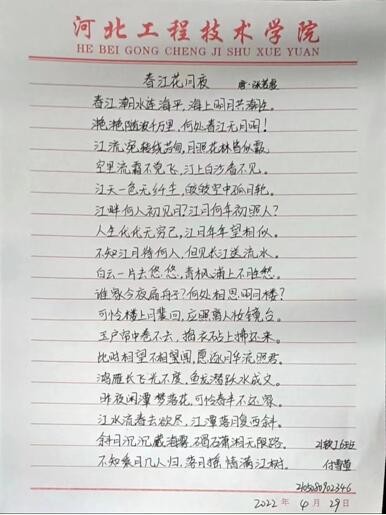 河北工程技术学院
HE BEI GONG CHENG JI SHU XUE YUAN
春江花月夜 唐·张若虚
春江潮水连海平，海上明月共潮生。
滟滟随波千万里，何处春江无月明！
江流宛转绕芳甸，月照花林皆似霰。
空里流霜不觉飞，汀上白沙看不见。
江天一色无纤尘，皎皎空中孤月轮。
江畔何人初见月？江月何年初照人？
人生代代无穷已，江月年年望相似。
不知江月待何人，但见长江送流水。
白云一片去悠悠，青枫浦上不胜愁。
谁家今夜扁舟子？何处相思明月楼？
可怜楼上月裴回，应照离人妆镜台。
玉户帘中卷不去，捣衣砧上拂还来。
此时相望不相闻，愿逐月华流照君。
鸿雁长飞光不度，鱼龙潜跃水成文。
昨夜闲潭梦落花，可怜春半不还家。
江水流春去欲尽，江潭落月复西斜。
斜月沉沉藏海雾，碣石潇湘无限路。 21软工6班
不知乘月几人归，落月摇情满江树。 付雪莹
2105080902346
2022 年 4 月 29 日